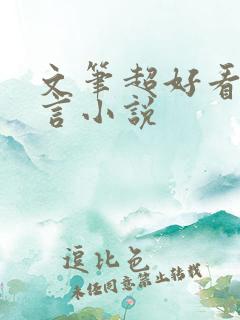 文笔超好看
言小说
逗比色
未经同意禁止转载